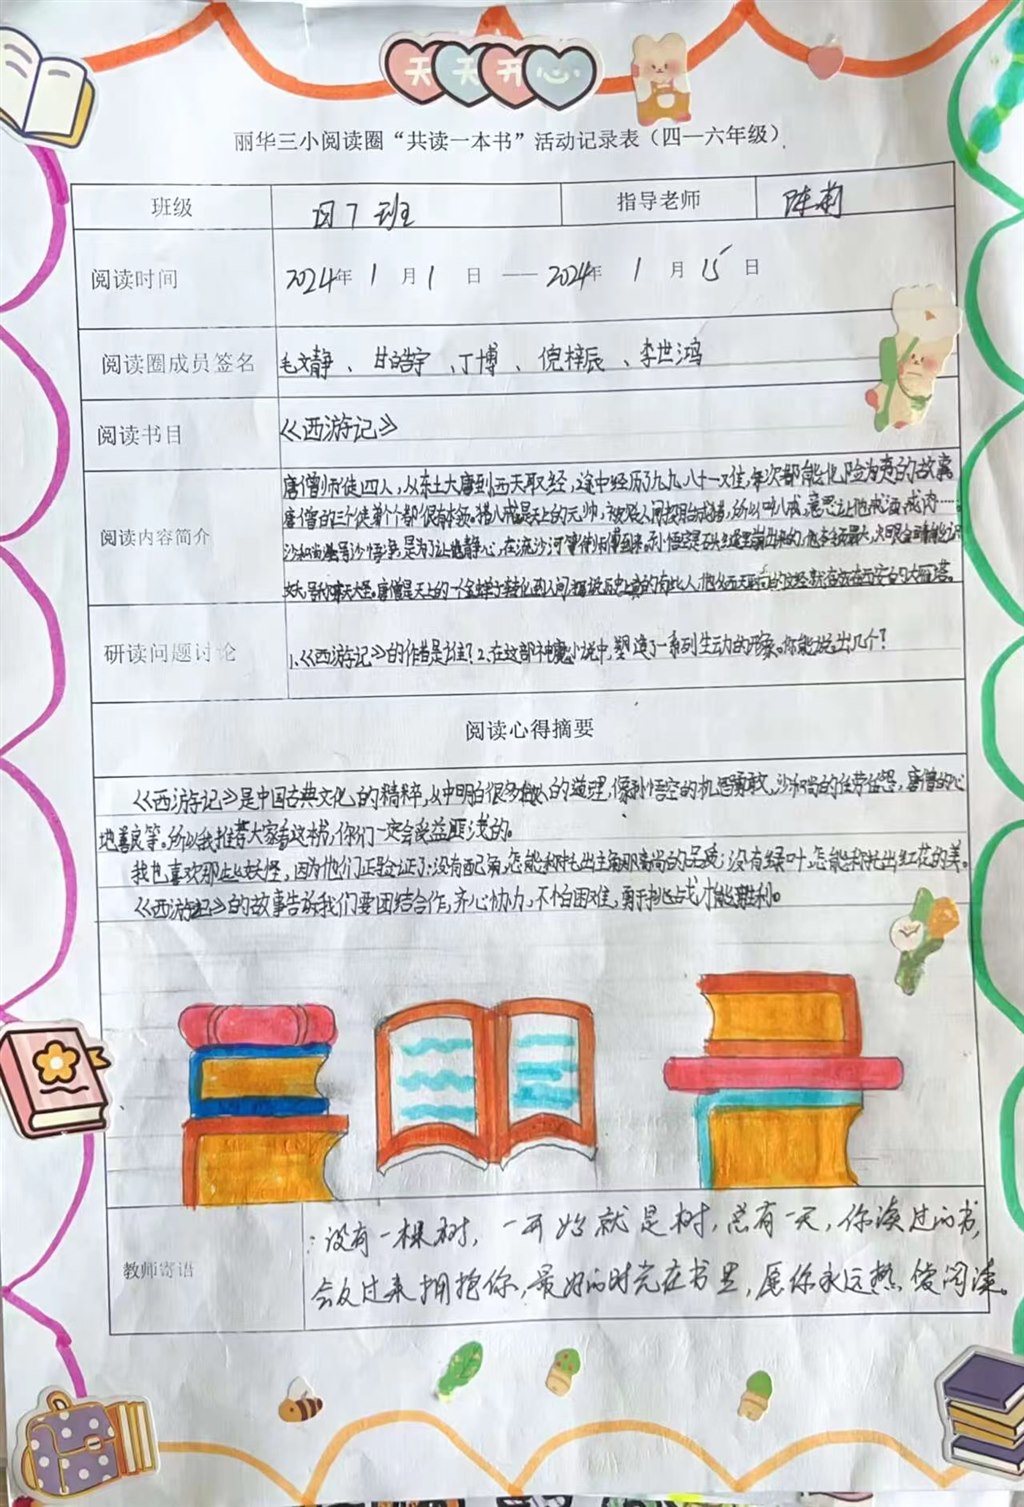 天天开心
丽华三小阅读圈“共读一本书”活动记录表（四—六年级）
班级 四7班 指导老师 陈莉
阅读时间 2024年1月1日 —— 2024年1月15日
阅读圈成员签名 毛文静、甘皓宇、丁博、倪梓辰、李世鸿
阅读书目 《西游记》
阅读内容简介
唐僧师徒四人，从东土大唐到西天取经，途中经历九九八十一难，每次都能化险为夷的故事
唐僧的三个徒弟个个都很有本领。猪八戒是天上的元帅，被贬人间投胎成猪，所以叫八戒，意思让他戒酒，戒肉……
沙和尚号沙悟净是为了让他静心，在流沙河
孙悟空是石头缝里蹦出来的，他本领最大，火眼金睛能识
妖，号称齐天大圣。唐僧是天上的一个金蝉子转化到人间
研读问题讨论 1.《西游记》的作者是谁？2.在这部神魔小说中，塑造了一系列生动的形象。你能说出几个？
阅读心得摘要
《西游记》是中国古典文化的精粹，从中明白很多做人的道理，像孙悟空的机智勇敢，沙和尚的任劳任怨，唐僧的心
地善良等。所以我推荐大家看这本书，你们一定会受益匪浅的。
我也喜欢那些妖怪，因为他们正验证了：没有配角，怎能衬托出主角那高尚的品质；没有绿叶，怎能衬托出红花的美。
《西游记》的故事告诉我们要团结合作，齐心协力，不怕困难，勇于挑战才能胜利。
教师寄语
：没有一棵树，一开始就是树，总有一天，你读过的书，
会反过来拥抱你，最好的时光在书里，愿你永远热爱阅读。